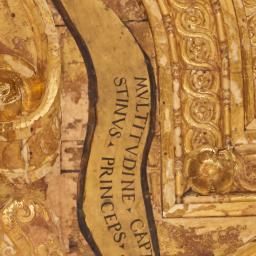 MVLTITVDINE · CAP
STINVS · PRINCEPS ·